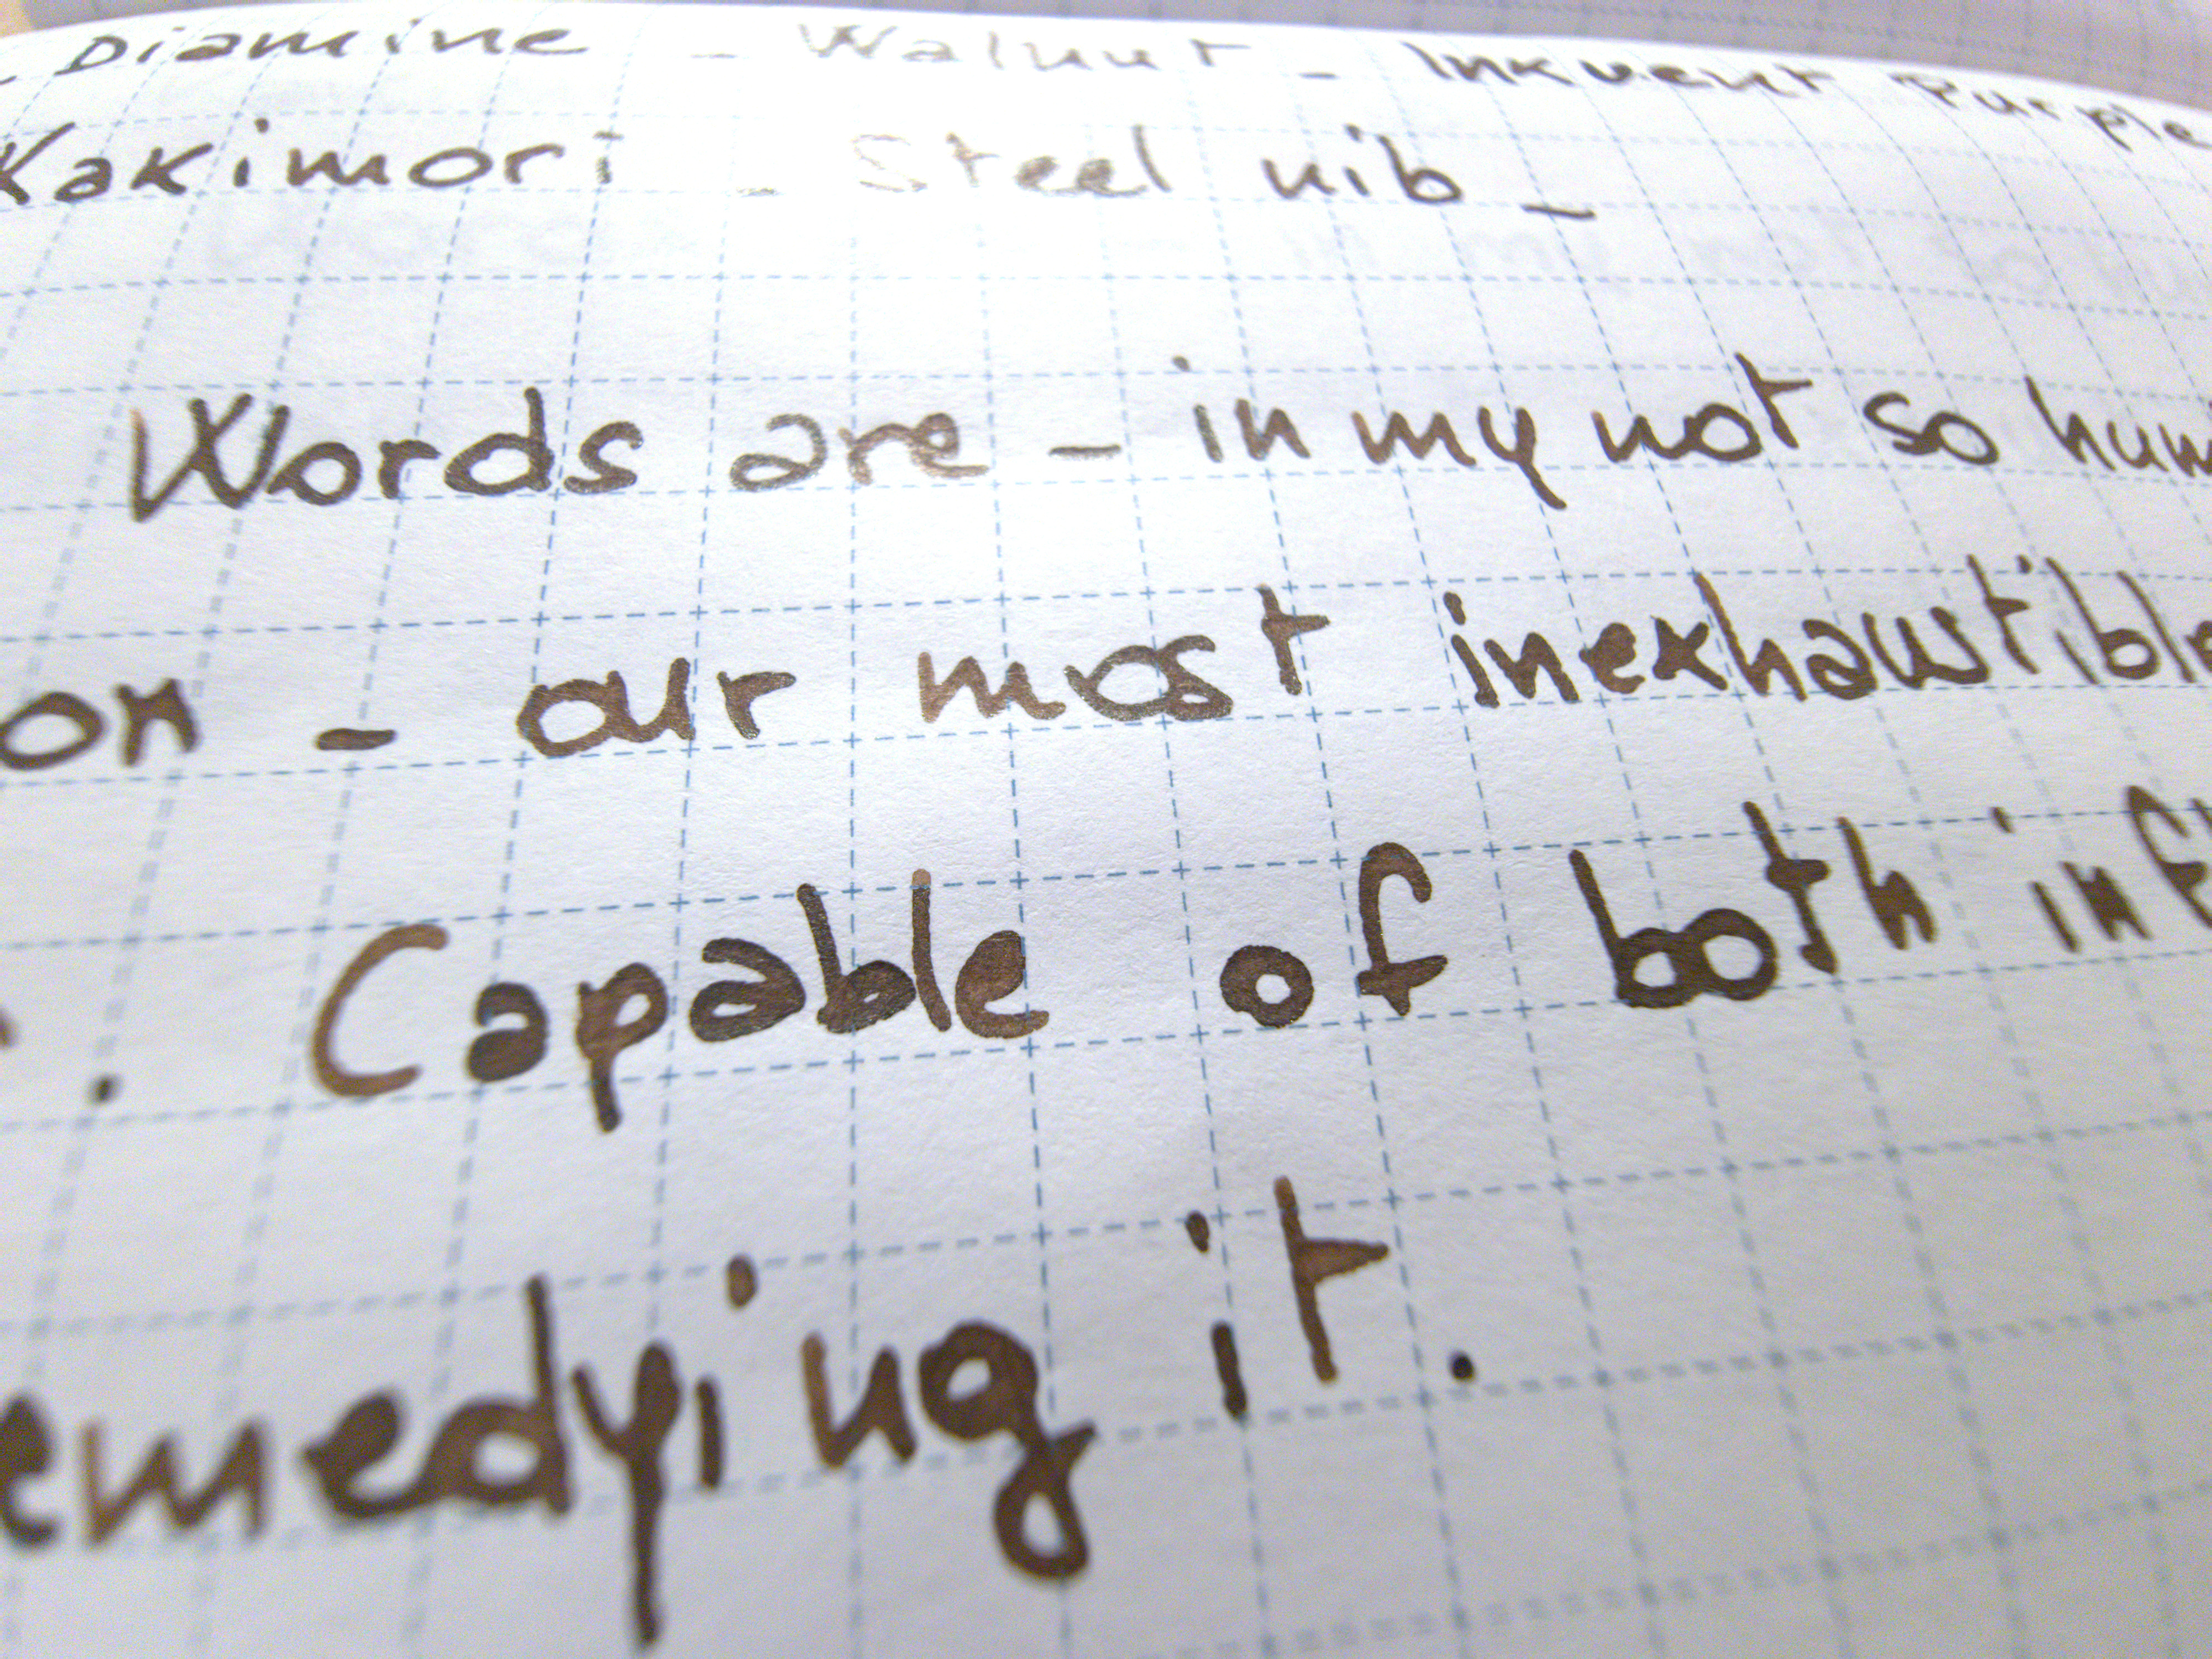 - Diamine - Walnut - Inkvent Purple
Kakimori - Steel nib -
Words are - in my not so hum
on - our most inexhaustible
. Capable of both infl
emedying it.